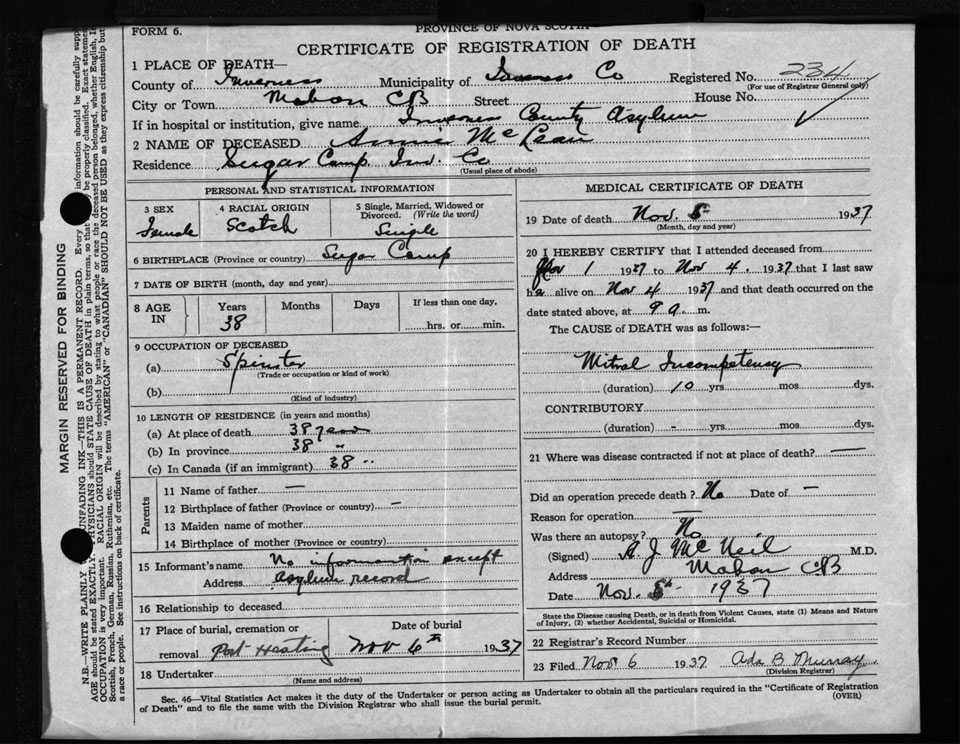 FORM 6.
PROVINCE OF NOVA SCOTIA
CERTIFICATE OF REGISTRATION OF DEATH
1 PLACE OF DEATH—
County of Inverness Municipality of Inverness Co Registered No. 234
(For use of Registrar General only)
City or Town Mabou CB Street House No.
If in hospital or institution, give name Inverness County Asylum
2 NAME OF DECEASED Annie McLean
Residence Sugar Camp Inv. Co
(Usual place of abode)
PERSONAL AND STATISTICAL INFORMATION
3 SEX
Female
4 RACIAL ORIGIN
Scotch
5 Single, Married, Widowed or Divorced. (Write the word)
Single
6 BIRTHPLACE (Province or country) Sugar Camp
7 DATE OF BIRTH (month, day and year)
8 AGE IN
Years
38
Months
Days
If less than one day,
hrs. or min.
9 OCCUPATION OF DECEASED
(a) Spinster
(Trade or occupation or kind of work)
(b)
(Kind of industry)
10 LENGTH OF RESIDENCE (in years and months)
(a) At place of death 38 years
(b) In province 38 "
(c) In Canada (if an immigrant) 38 "
Parents
11 Name of father —
12 Birthplace of father (Province or country) —
13 Maiden name of mother
14 Birthplace of mother (Province or country)
15 Informant's name No information except
Address asylum record
16 Relationship to deceased
17 Place of burial, cremation or
removal Port Hastings
Date of burial
Nov 6th 1937
18 Undertaker
(Name and address)
MEDICAL CERTIFICATE OF DEATH
19 Date of death Nov. 5 1937
(Month, day and year)
20 I HEREBY CERTIFY that I attended deceased from
Nov 1 1937 to Nov 4. 1937 that I last saw
h alive on Nov 4 1937 and that death occurred on the
date stated above, at 9 a. m.
The CAUSE of DEATH was as follows:—
Mitral Incompetency
(duration) 10 yrs. mos. dys.
CONTRIBUTORY
(duration) - yrs. mos. dys.
21 Where was disease contracted if not at place of death? —
Did an operation precede death? No Date of —
Reason for operation —
Was there an autopsy? No
(Signed) A. J. McNeil M.D.
Address Mabou CB
Date Nov. 5 1937
State the Disease causing Death, or in death from Violent Causes, state (1) Means and Nature
of Injury, (2) whether Accidental, Suicidal or Homicidal.
22 Registrar's Record Number
23 Filed Nov 6 1937 Ada B. Murray
(Division Registrar)
Sec. 46—Vital Statistics Act makes it the duty of the Undertaker or person acting as Undertaker to obtain all the particulars required in the "Certificate of Registration
of Death" and to file the same with the Division Registrar who shall issue the burial permit.
(OVER)
MARGIN RESERVED FOR BINDING
N.B.—WRITE PLAINLY UNFADING INK—THIS IS A PERMANENT RECORD. Every information should be carefully supp
AGE should be stated EXACTLY. PHYSICIANS should STATE CAUSE OF DEATH in plain terms, so that be properly classified. Exact statement
OCCUPATION is very important. RACIAL ORIGIN will be described by stating to what people or race the deceased person belonged, whether English, I
Scottish, French, German, Russian, Ruthenian, etc. The terms "AMERICAN" or "CANADIAN" SHOULD NOT BE USED as they express citizenship but
a race or people. See instructions on back of certificate.